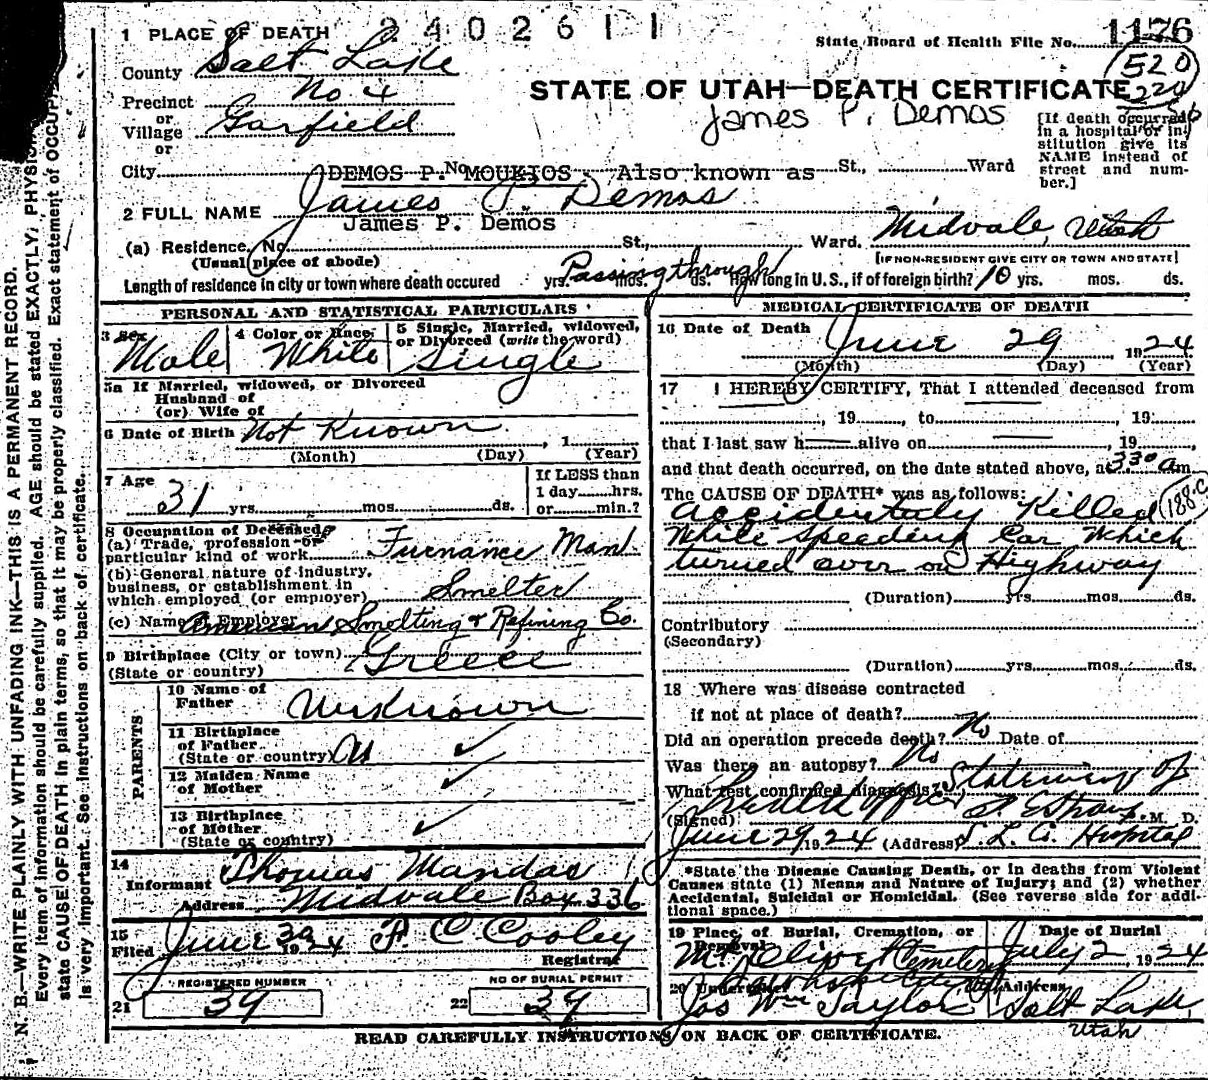 1 PLACE OF DEATH 2402611
State Board of Health File No. 1176
County Salt Lake
520
STATE OF UTAH—DEATH CERTIFICATE
Precinct No 4
or
Village Garfield
or
James P. Demos
[If death occurred in a hospital or institution give its NAME instead of street and number.]
City No. St., Ward
DEMOS P. MOUKIOS Also known as
2 FULL NAME James P. Demos
James P. Demos
(a) Residence. No. St., Ward. Midvale, Utah
(Usual place of abode) [IF NON-RESIDENT GIVE CITY OR TOWN AND STATE]
Length of residence in city or town where death occured yrs. mos. ds. Passing through How long in U.S., if of foreign birth? 10 yrs. mos. ds.
PERSONAL AND STATISTICAL PARTICULARS
3 Sex Male
4 Color or Race White
5 Single, Married, widowed, or Divorced (write the word) Single
5a If Married, widowed, or Divorced
Husband of
(or) Wife of
6 Date of Birth Not Known , 1
(Month) (Day) (Year)
7 Age 31 yrs. mos. ds.
If LESS than
1 day hrs.
or min.?
8 Occupation of Deceased
(a) Trade, profession or
particular kind of work Furnance Man
(b) General nature of industry,
business, or establishment in
which employed (or employer) Smelter
(c) Name of Employer American Smelting & Refining Co.
9 Birthplace (City or town) Greece
(State or country)
PARENTS
10 Name of
Father Unknown
11 Birthplace
of Father
(State or country)
12 Maiden Name
of Mother
13 Birthplace
of Mother
(State or country)
14
Informant Thomas Mandas
Address Midvale Box 336
15
Filed June 30 1924 F. C. Cooley
Registrar
REGISTERED NUMBER
21 39
NO OF BURIAL PERMIT
22 39
MEDICAL CERTIFICATE OF DEATH
16 Date of Death June 29 1924
(Month) (Day) (Year)
17 I HEREBY CERTIFY, That I attended deceased from
, 19 , to , 19
that I last saw h alive on , 19
and that death occurred, on the date stated above, at 330 a m
The CAUSE OF DEATH* was as follows:
188.c
accidentaly Killed
While speeding Car Which
turned over on Highway
(Duration) yrs. mos. ds.
Contributory
(Secondary)
(Duration) yrs. mos. ds.
18 Where was disease contracted
if not at place of death?
Did an operation precede death? No Date of
Was there an autopsy? No
What test confirmed diagnosis? Statement of
Health Officer
(Signed) M. D.
June 29 1924 (Address) S. L. Co. Hospital
*State the Disease Causing Death, or in deaths from Violent
Causes state (1) Means and Nature of Injury; and (2) whether
Accidental, Suicidal or Homicidal. (See reverse side for additional space.)
19 Place of Burial, Cremation, or
Removal
Mt. Olivet Cemetery
Date of Burial
July 2, 1924
20 Undertaker
Jos Wm Taylor
Address
Salt Lake,
Utah
READ CAREFULLY INSTRUCTIONS ON BACK OF CERTIFICATE.
N. B.—WRITE PLAINLY WITH UNFADING INK—THIS IS A PERMANENT RECORD.
Every item of information should be carefully supplied. AGE should be stated EXACTLY; PHYSI
state CAUSE OF DEATH in plain terms, so that it may be properly classified. Exact statement of OCCUP
is very important. See instructions on back of certificate.